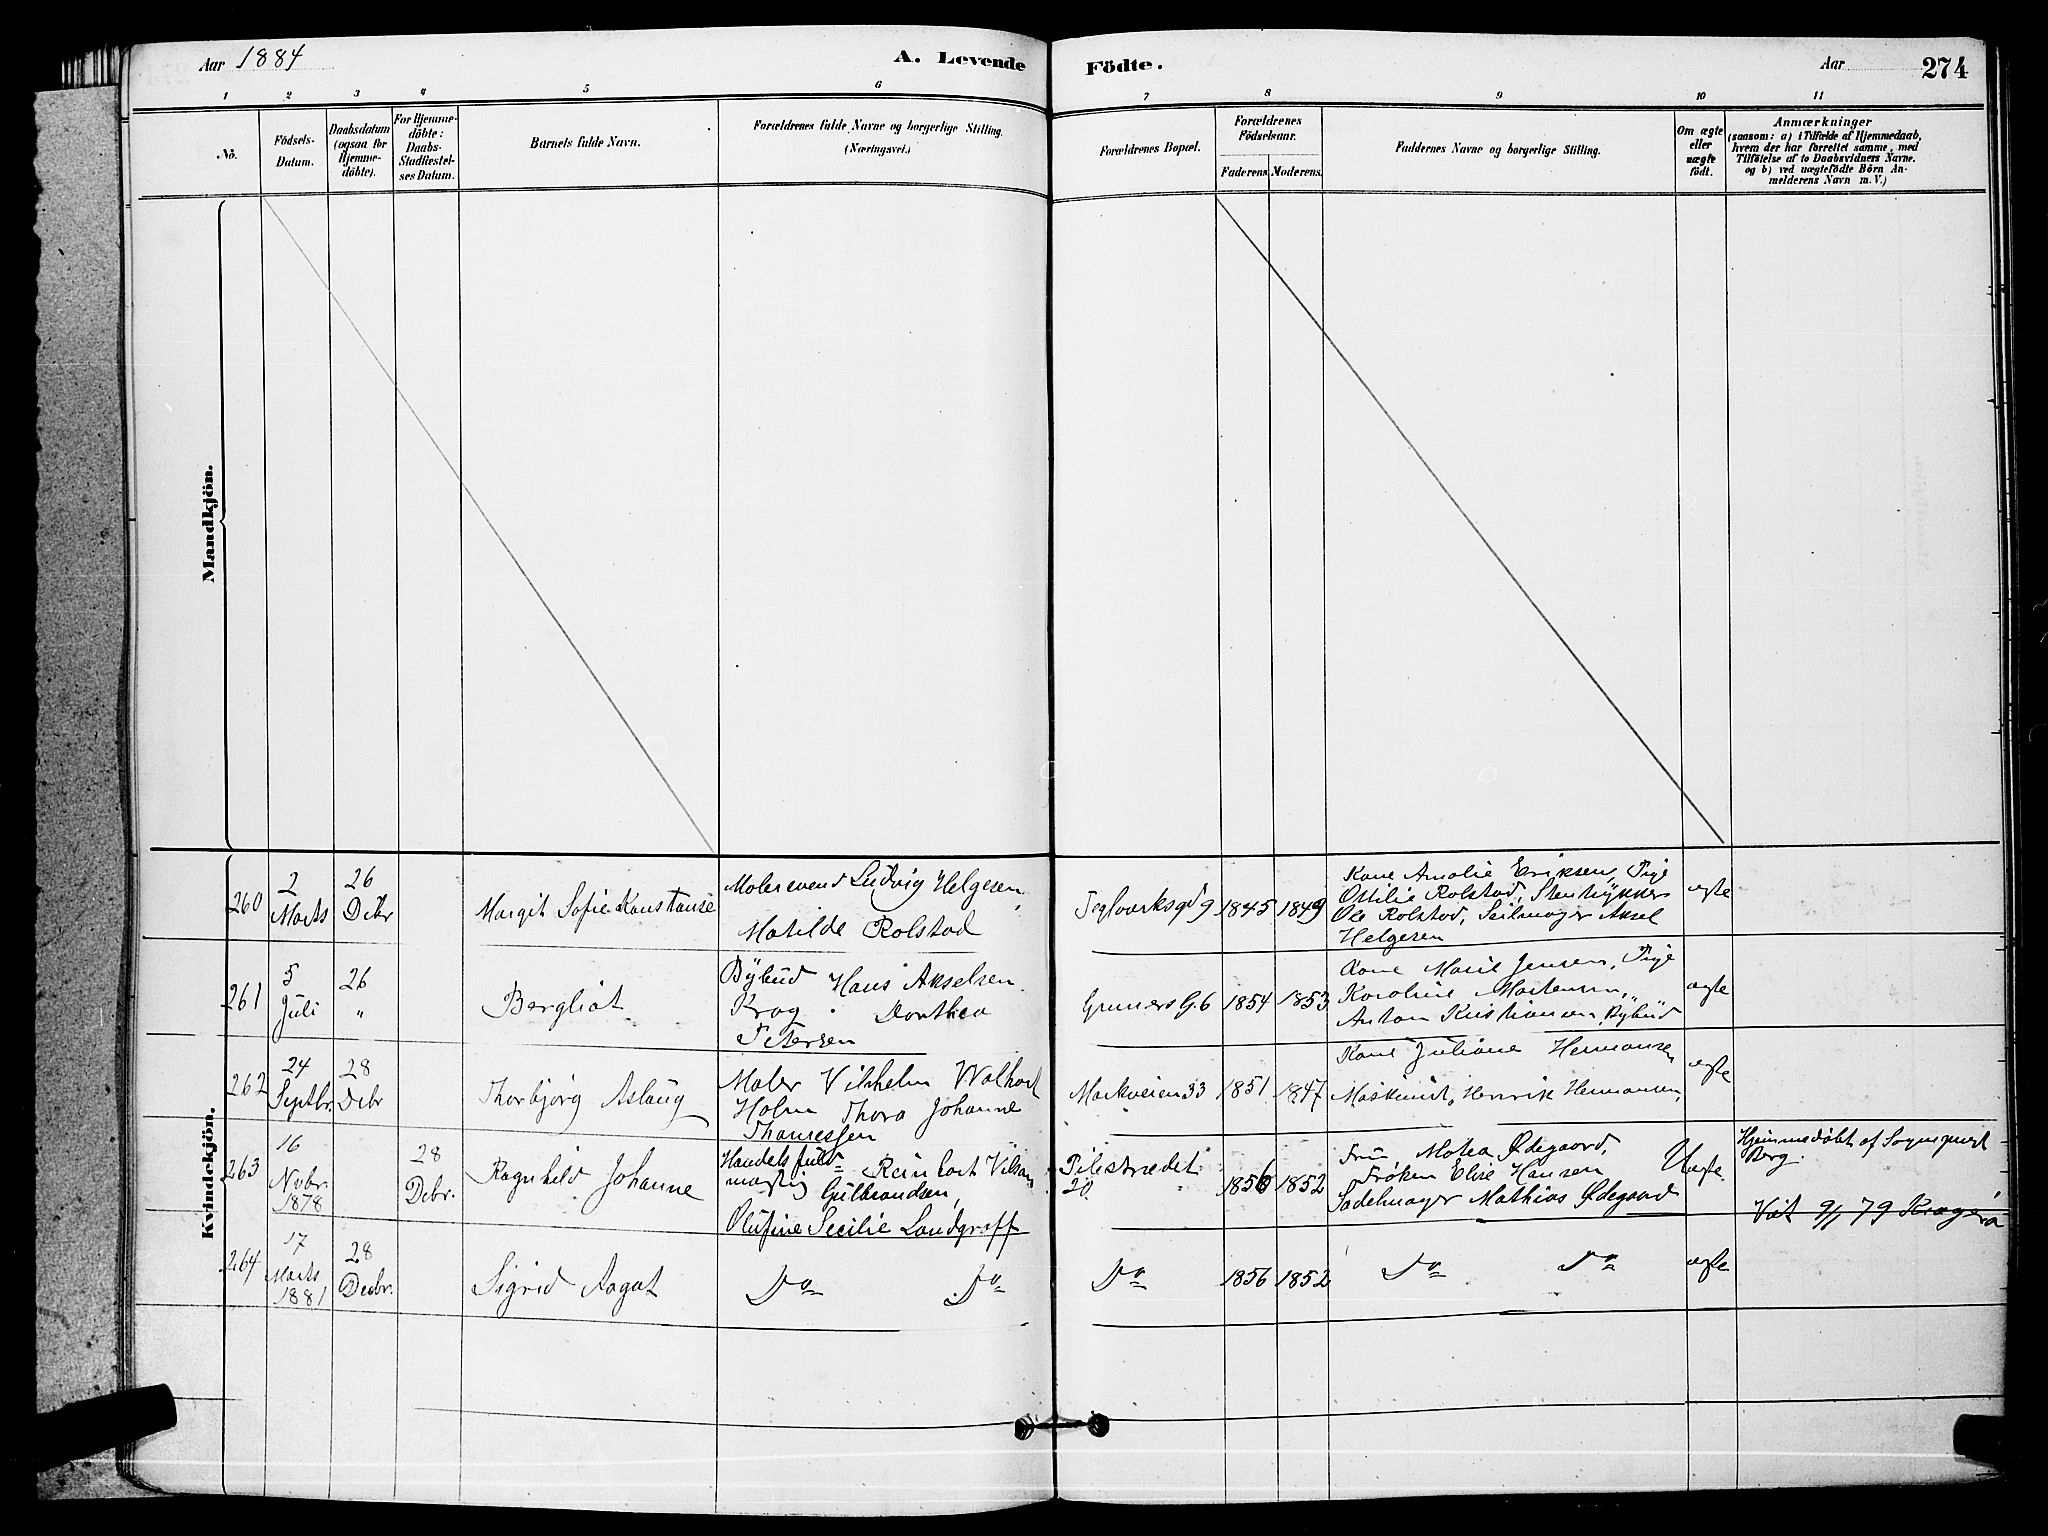 Aar 1884
A. Levende
Födte.
Aar
274
1 2 3 4 5 6 7 8 9 10 11
Nö.
Födsels-
Datum.
Daabsdatum
(ogsaa for
Hjemme-
döbte).
For Hjemme-
döbte:
Daabs-
Stadfæstel-
ses Datum.
Barnets fulde Navn.
Forældrenes fulde Navne og borgerlige Stilling.
(Næringsvei.)
Forældrenes Bopæl.
Forældrenes
Födselsaar.
Faderens.
Moderens.
Faddernes Navne og borgerlige Stilling.
Om ægte
eller
uægte
födt.
Anmærkninger
(saasom: a) i Tilfælde af Hjemmedaab,
hvem der har forrettet samme, med
Tilföielse af to Daabsvidners Navne.
og b) ved uægtefödte Börn An-
melderens Navn m.V.)
Mandkjön.
Kvindekjön.
260
2
Marts
26
Debr
Margit Sofie Konstanse
Malersvend Ludvig Helgesen,
Matilde Rolstad
Teglverksgd 9
1845
1849
Kone Amalie Eriksen, Pige
Ottilie Rolstad, Stentrykker
Ole Rolstad, Seilmager Aksel
Helgesen
ægte
261
5
Juli
26
"
Bergliot
Bybud Hans Akselsen
Krog. Dorthea
Petersen
Gruners G. 6
1854
1853
Kone Marie Jensen, Pige
Karoline Mortensen,
Anton Kristiansen, Bybud
ægte
262
24
Septbr.
28
Debr
Thorbjörg Aslaug
Maler Vilhelm
Holm Thora Johanne
Markveien 33
1851
1847
Kone Juliane Hermansen
Maskinist, Henrik Hermansen,
ægte
263
16
Nvbr.
1878
28
Debr.
Ragnhild Johanne
Handelsfuld-
mægtig Reinhart
Gulbrandsen,
Olufine Secilie Landgraff
Pilestrædet
20
1856
1852
Fru Motea Ødegaard,
Frøken Elise Hansen
Sadelmager Mathias Ødegaard
Uægte.
Hjemmedøbt af Sogneprest
Berg.
9/1 79 Kragerø
264
17
Marts
1881
28
Decbr.
Sigrid Aagot
Do Do
Do
1856
1852
Do Do
ægte